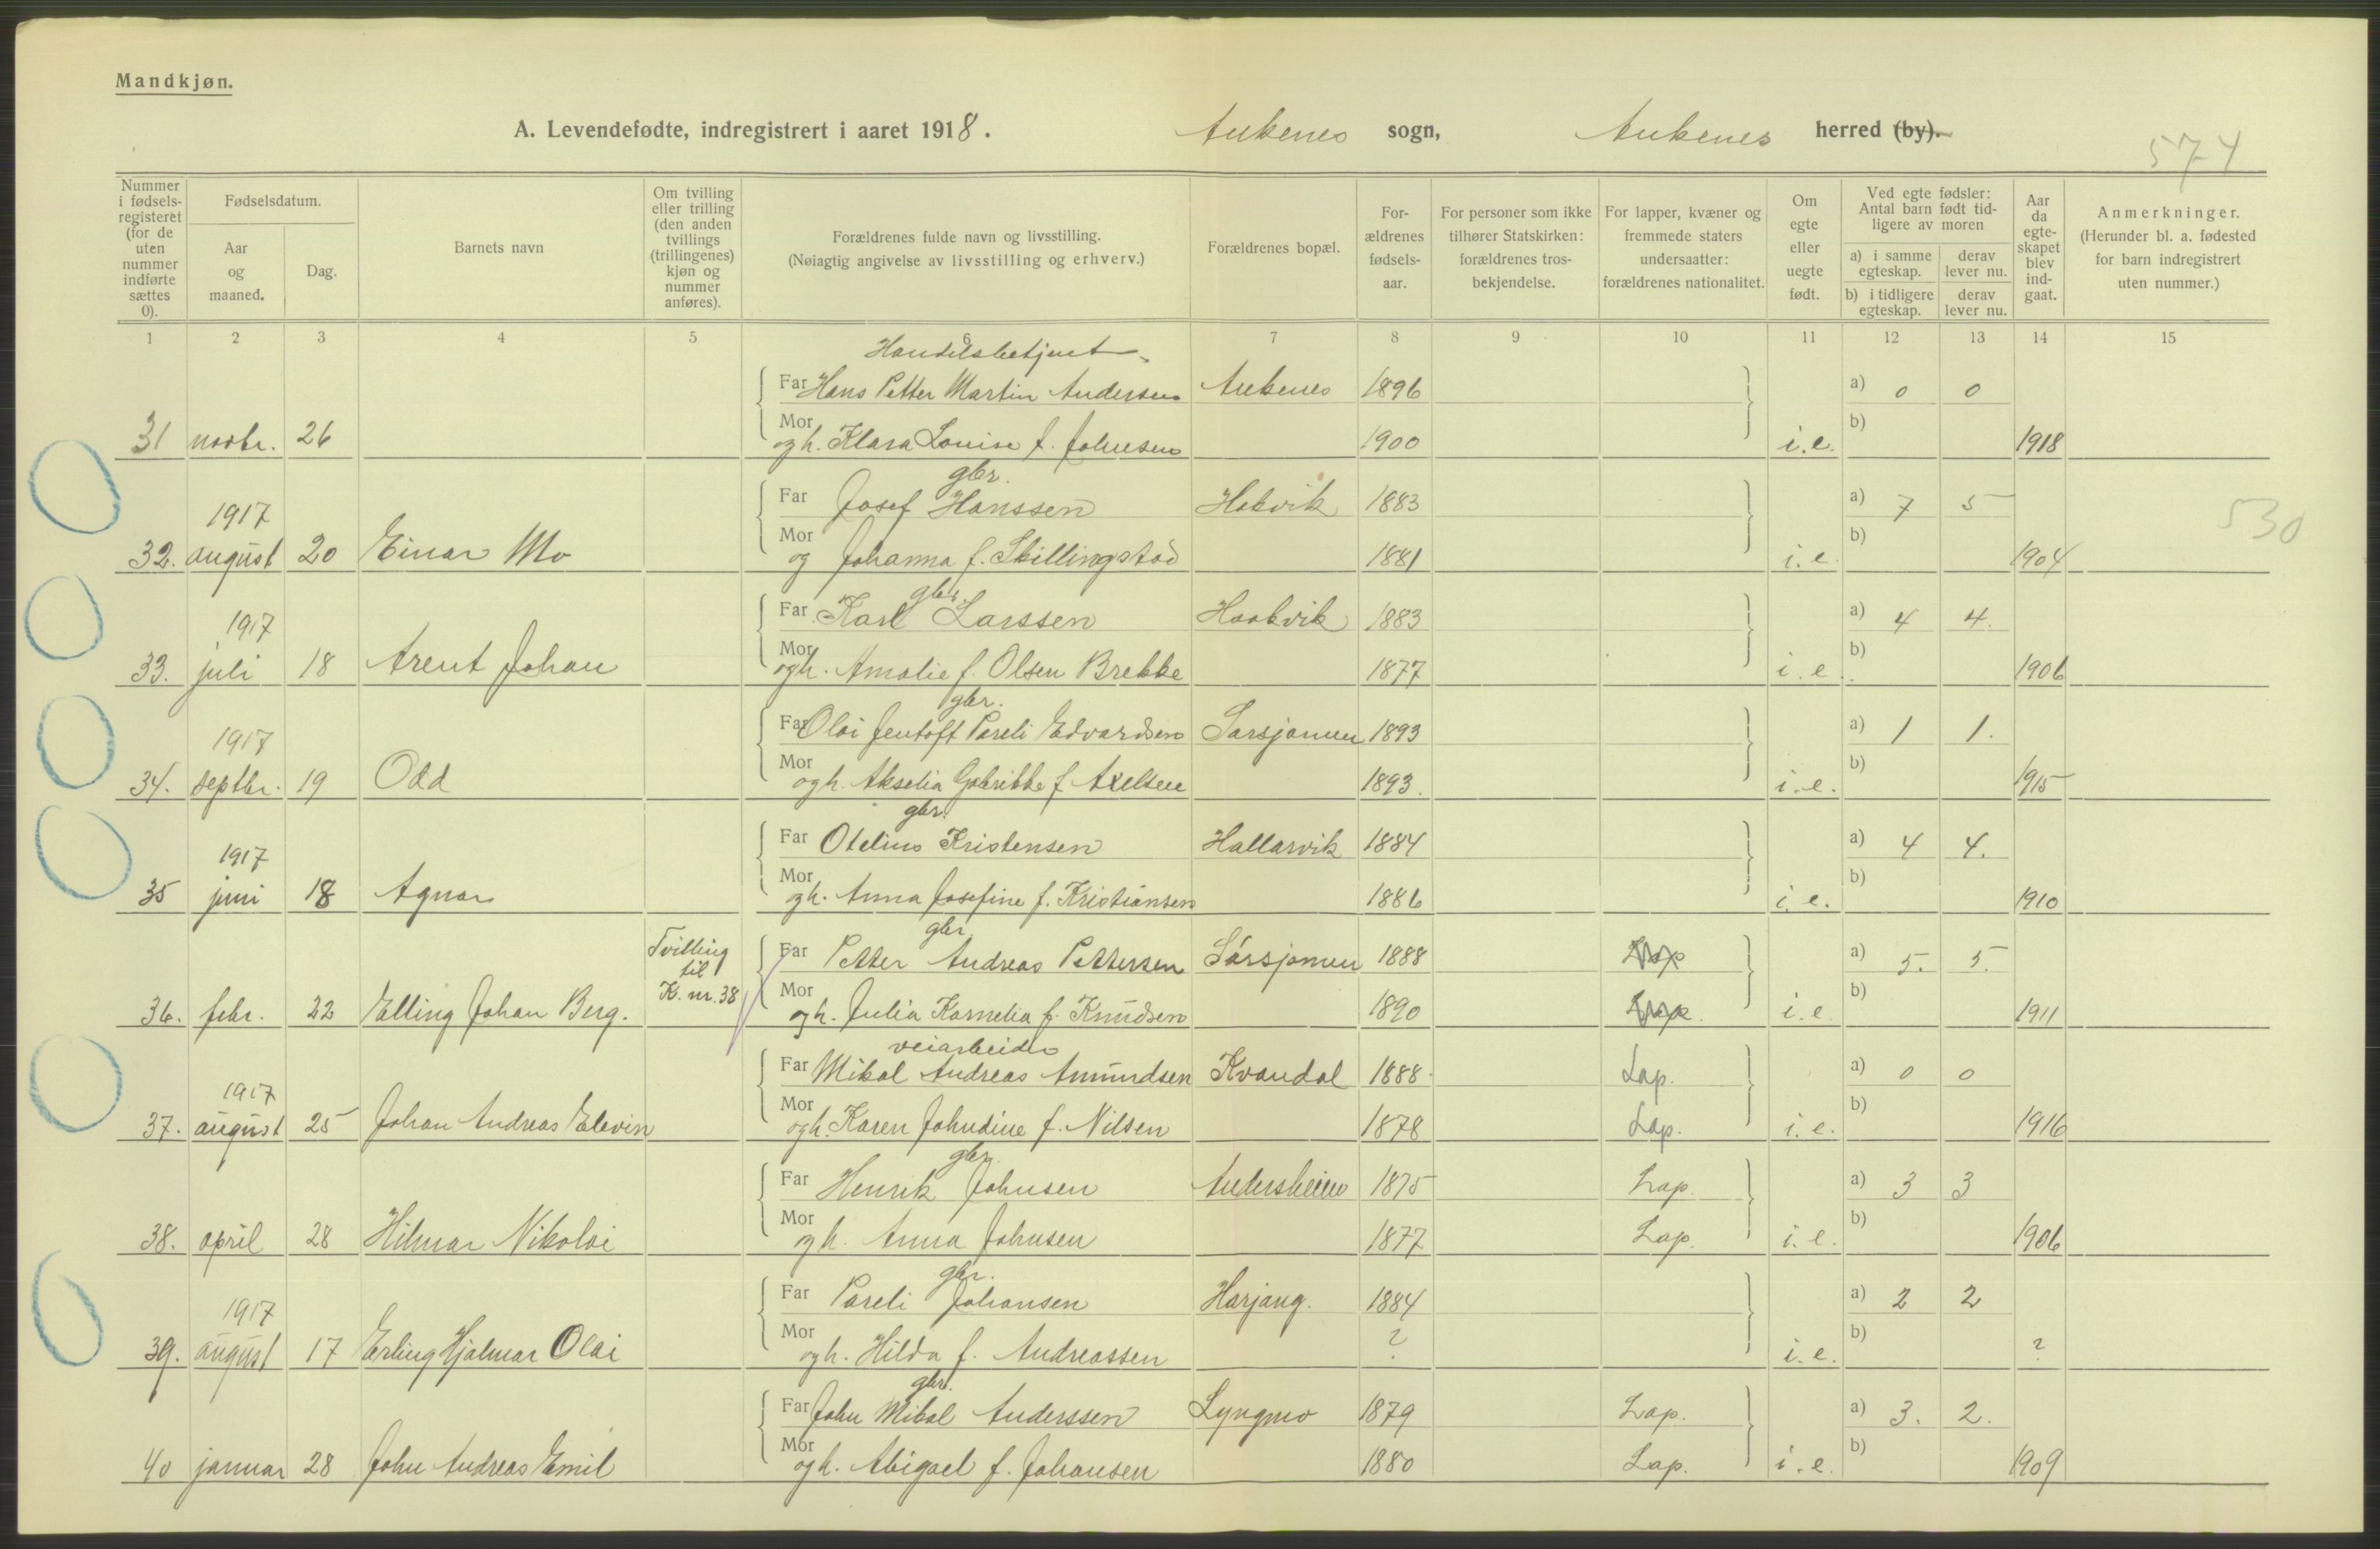 Mandkjøn.
A. Levendefødte, indregistrert i aaret 1918. Ankenes sogn, Ankenes herred (by).
574
Nummer i fødsels-registeret (for de uten nummer indførte sættes 0).
Fødselsdatum.
Aar og maaned.
Dag.
Barnets navn
Om tvilling eller trilling (den anden tvillings (trillingenes) kjøn og nummer anføres).
Forældrenes fulde navn og livsstilling. (Nøiagtig angivelse av livsstilling og erhverv.)
Forældrenes bopæl.
For-ældrenes fødsels-aar.
For personer som ikke tilhører Statskirken: forældrenes tros-bekjendelse.
For lapper, kvæner og fremmede staters undersaatter: forældrenes nationalitet.
Om egte eller uegte født.
Ved egte fødsler: Antal barn født tid-ligere av moren
a) i samme egteskap. derav lever nu.
b) i tidligere egteskap. derav lever nu.
Aar da egte-skapet blev ind-gaat.
Anmerkninger. (Herunder bl. a. fødested for barn indregistrert uten nummer.)
1 2 3 4 5 6 7 8 9 10 11 12 13 14 15
Handelsbetjent
Far Hans Petter Martin Andersen Ankenes 1896 a) 0 0
31 novbr. 26 Mor og h. Klara Louise f. Johnsen 1900 i.e. b) 1918
gbr.
1917 Far Josef Hanssen Hakvik 1883 a) 7 5 530
32. august 20 Einar Mo Mor og Johanna f. Skillingstad 1881 i.e. b) 1904
gbr.
1917 Far Karl Larssen Haakvik 1883 a) 4 4.
33. juli 18 Arent Johan Mor og h. Amalie f. Olsen Brekke 1877 i.e. b) 1906
gbr.
1917 Far Olai Jentoft Pareli Edvardsen Sørsjomen 1893 a) 1 1.
34. septbr. 19 Odd Mor og h. Akselia Gabrikke f. Axelsen 1893. i.e. b) 1915
gbr.
1917 Far Otelius Kristensen Hallarvik 1884 a) 4 4.
35 juni 18 Agnar Mor og h. Anna Josefine f. Kristiansen 1886 i.e. b) 1910
gbr.
Tvilling til K. nr. 38 Far Petter Andreas Pettersen Sørsjomen 1888 Lap a) 5. 5.
36. febr. 22 Elling Johan Berg. Mor og h. Julia Kornelia f. Knudsen 1890 Lap. i.e. b) 1911
veiarbeider
1917 Far Mikal Andreas Amundsen Kvandal 1888 Lap. a) 0 0
37. august 25 Johan Andreas Elevin Mor og h. Karen Johndine f. Nilsen 1878 Lap. i.e. b) 1916
gbr.
Far Henrik Johnsen Andersheim 1875 Lap. a) 3 3
38. april 28 Hilmar Nikolai Mor og h. Anna Johnsen 1877 Lap. i.e. b) 1906
gbr.
1917 Far Pareli Johansen Harjang. 1884 a) 2 2
39. august 17 Erling Hjalmar Olai Mor og h. Hilda f. Andreassen ? i.e. b) ?
gbr.
Far John Mikal Anderssen Lyngmo 1879 Lap. a) 3. 2.
40 januar 28 John Andreas Emil Mor og h. Abigael f. Johansen 1880 Lap. i.e. b) 1909